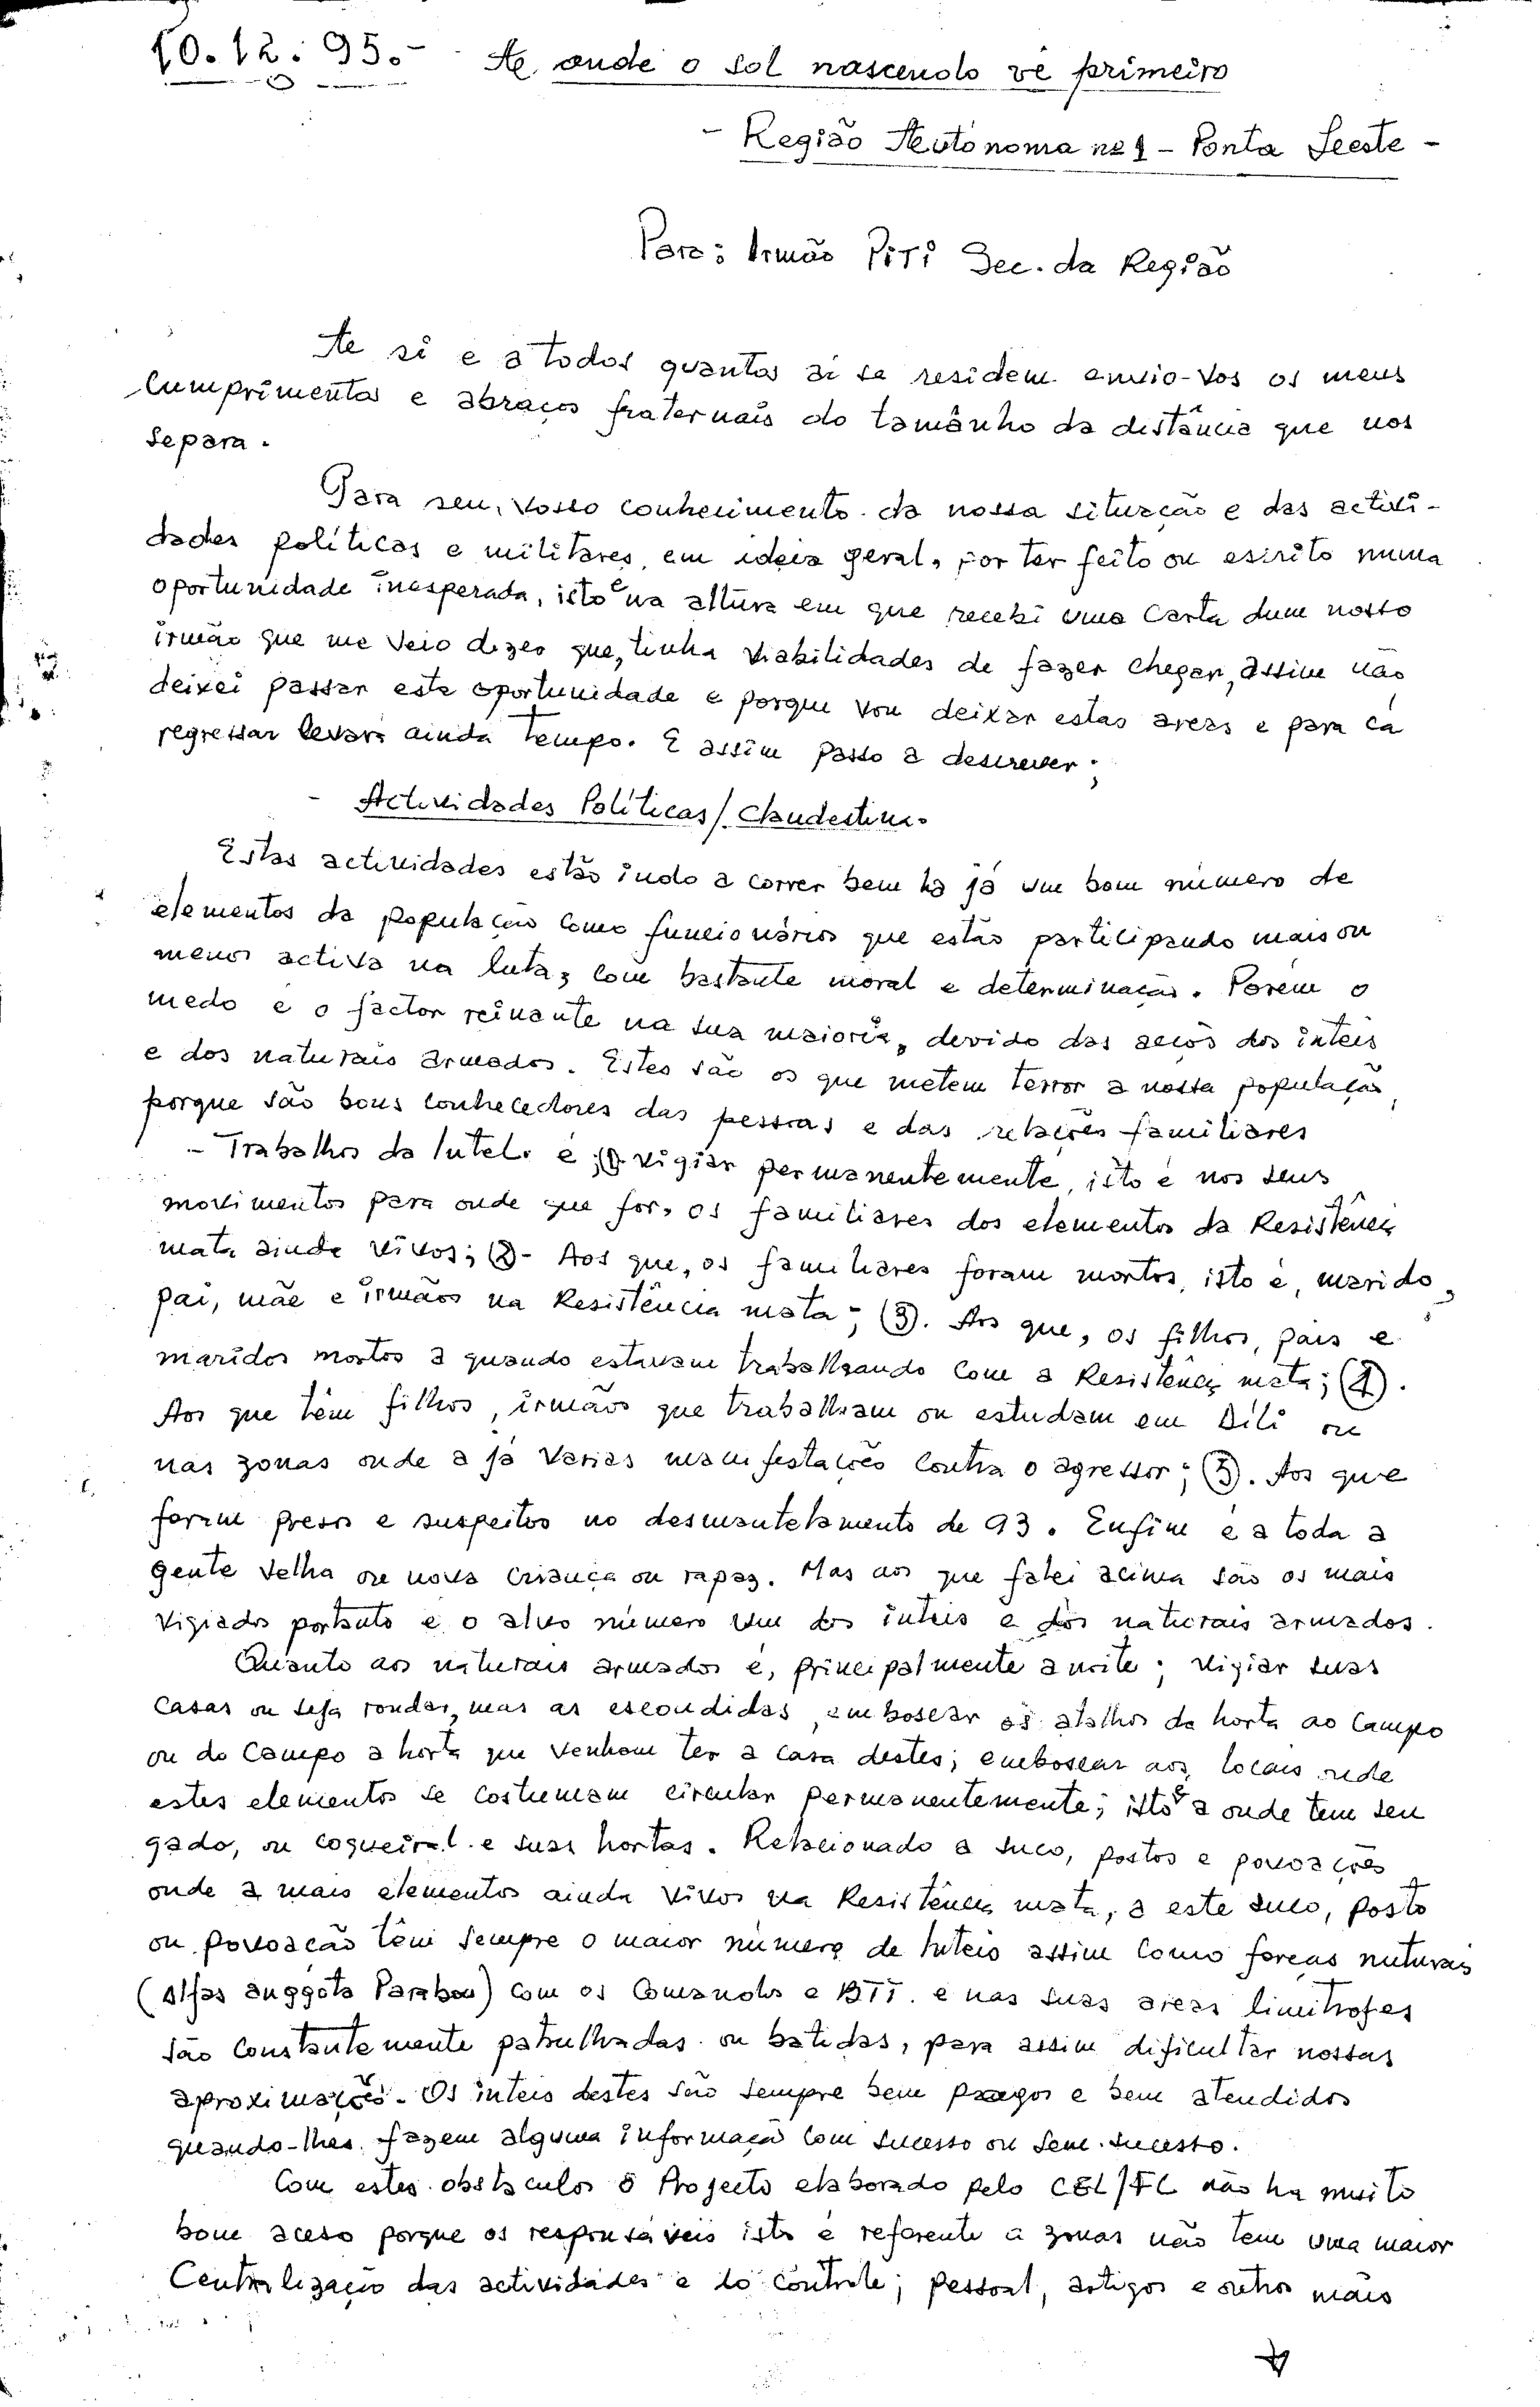 10.12.95.- A onde o sol nascendo vê primeiro
- Região Autónoma nº 1 - Ponta Leste -
Para: Irmão PiTi Sec. da Região
A si e a todos quantos aí se residem envio-vos os meus
Cumprimentos e abraços fraternais do tamânho da distância que nos
Separa.
Para seu, vosso conhecimento da nossa situação e das activi-
dades políticas e militares, em ideia geral, por ter feito ou escrito numa
oportunidade inesperada, isto é na altura em que recebi uma Carta dum nosso
irmão que me veio dizer que, tinha viabilidades de fazer chegar, assim não
deixei passar esta oportunidade e porque vou deixar estas areas e para cá
regressar levará ainda tempo. E assim passo a descrever:
- Actividades Políticas/Clandestina.
Estas actividades estão indo a correr bem há já um bom número de
elementos da população como funcionários que estão participando mais ou
menos activa na luta, com bastante moral e determinação. Porém o
medo é o factor reinante na sua maioria, devido das acções dos inteis
e dos naturais armados. Estes são os que metem terror a nossa população,
porque são bons conhecedores das pessoas e das relações familiares
- Trabalhos da Intel. é; (1). vigiar permanentemente, isto é nos seus
movimentos para onde que for, os familiares dos elementos da Resistência
mata ainda vivos; (2)- Aos que, os familiares foram mortos, isto é, marido,
pai, mãe e irmãos na Resistência mata; (3). Aos que, os filhos, pais e
maridos mortos a quando estavam trabalhando com a Resistência mata; (4).
Aos que têm filhos, irmãos que trabalham ou estudam em Dili ou
nas zonas onde a já varias manifestações contra o agressor; (5). Aos que
foram presos e suspeitos no desmantelamento de 93. Enfim é a toda a
gente velha ou nova criança ou rapaz. Mas aos que falei acima são os mais
vigiados portanto é o alvo número um dos inteis e dos naturais armados.
Quanto aos naturais armados é, principalmente a noite; vigiar suas
casas ou seja rondar, mas as escondidas, emboscar os atalhos da horta ao Campo
ou do Campo a horta que venham ter a casa destes; emboscar aos locais onde
estes elementos se costumam circular permanentemente; isto é a onde tem seu
gado, ou coqueiral e suas hortas. Relacionado a suco, postos e povoações
onde a mais elementos ainda vivos na Resistência mata, a este suco, posto
ou povoação têm sempre o maior número de Inteis assim como forças naturais
(Alfas anggota) com os Comandos e BTT. e nas suas areas limitrofes
são constantemente patrulhadas ou batidas, para assim dificultar nossas
aproximações. Os inteis destes são sempre bem pagos e bem atendidos
quando-lhes fazem alguma informação com sucesso ou sem sucesso.
Com estes obstaculos o Projecto elaborado pelo CEL/FC não ha muito
bom aceso porque os responsáveis isto é referente a zonas não tem uma maior
Centralização das actividades e do controle; pessoal, artigos e outros mais